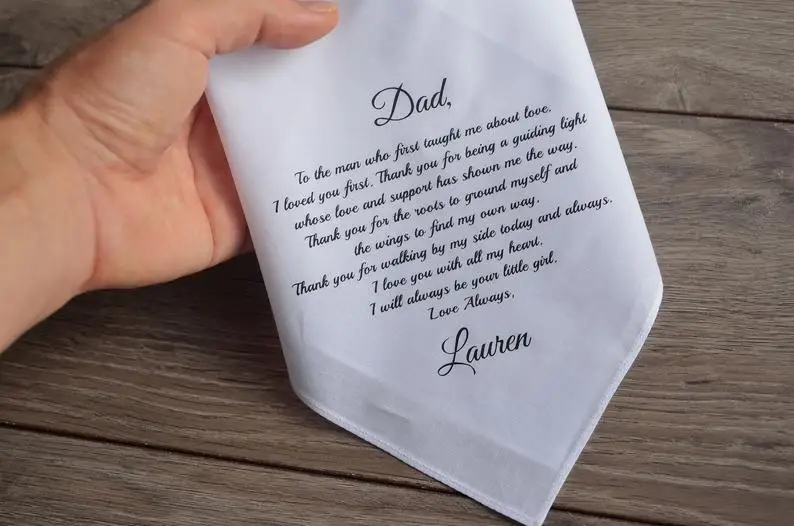 Dad,
To the man who first taught me about love.
I loved you first. Thank you for being a guiding light
whose love and support has shown me the way.
Thank you for the roots to ground myself and
the wings to find my own way.
Thank you for walking by my side today and always.
I love you with all my heart.
I will always be your little girl.
Love Always,
Lauren